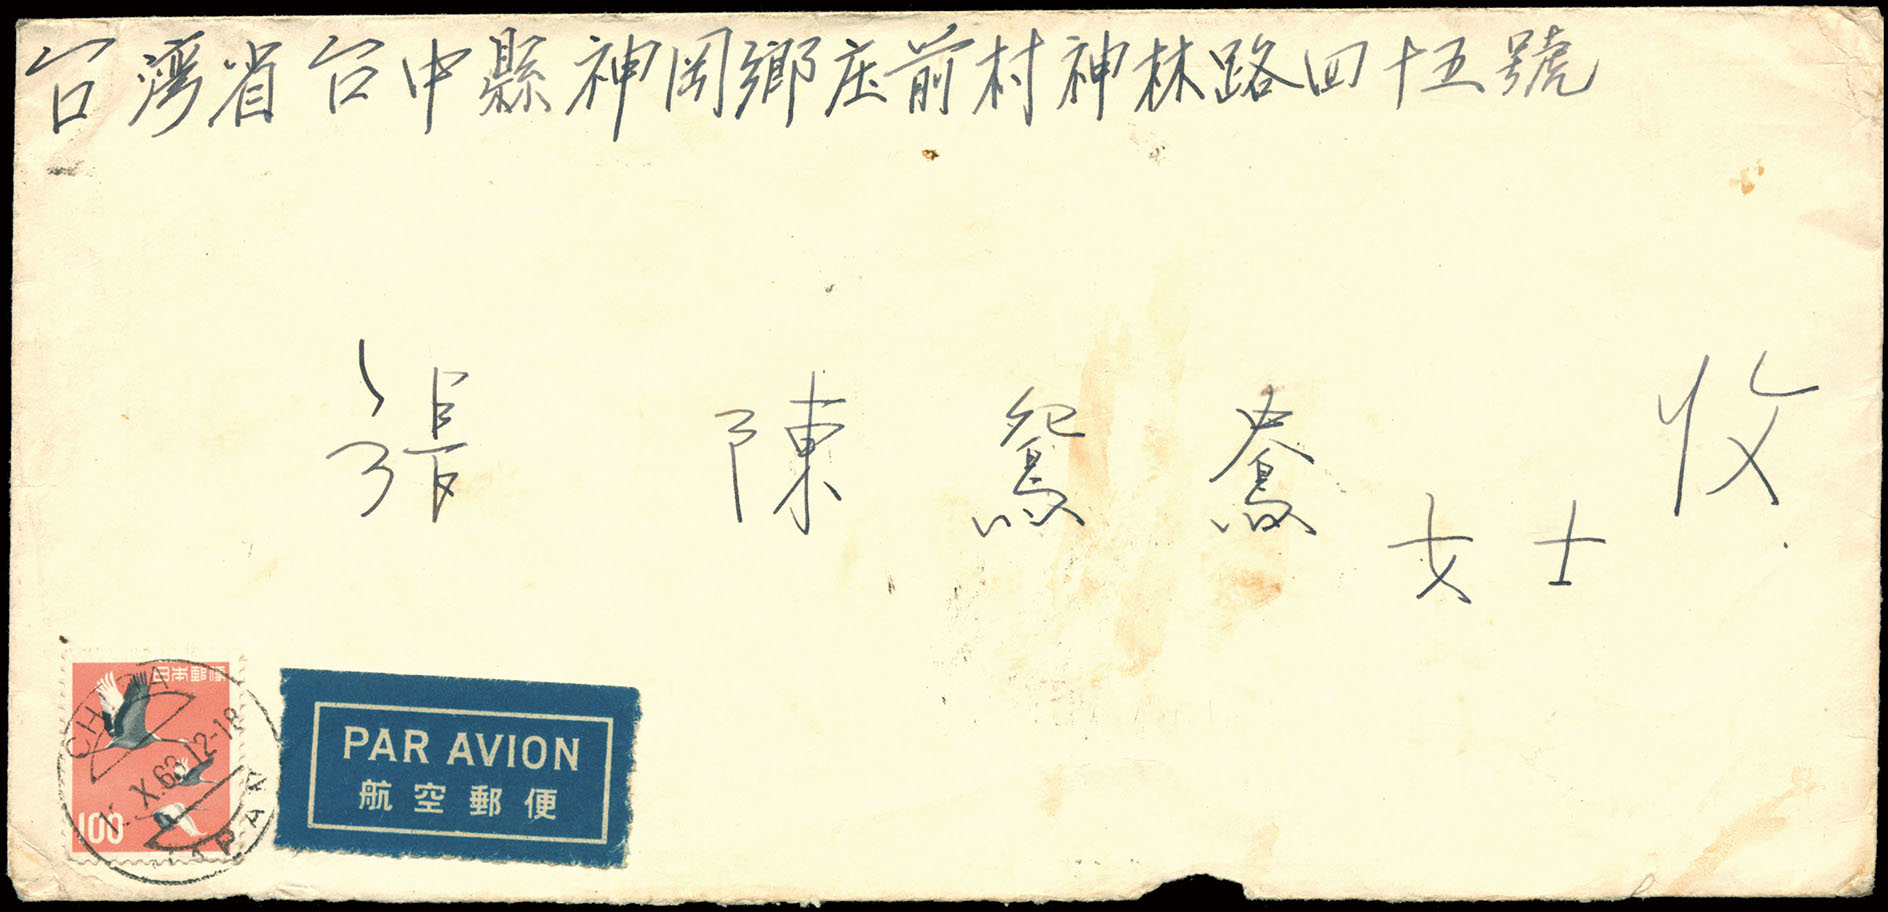 台湾省台中縣神岡鄉庄前村神林路四十五號
張陳鴛鴦女士收
日本郵便
100
CHIBA
X.63.12-18
JAPAN
PAR AVION
航空郵便